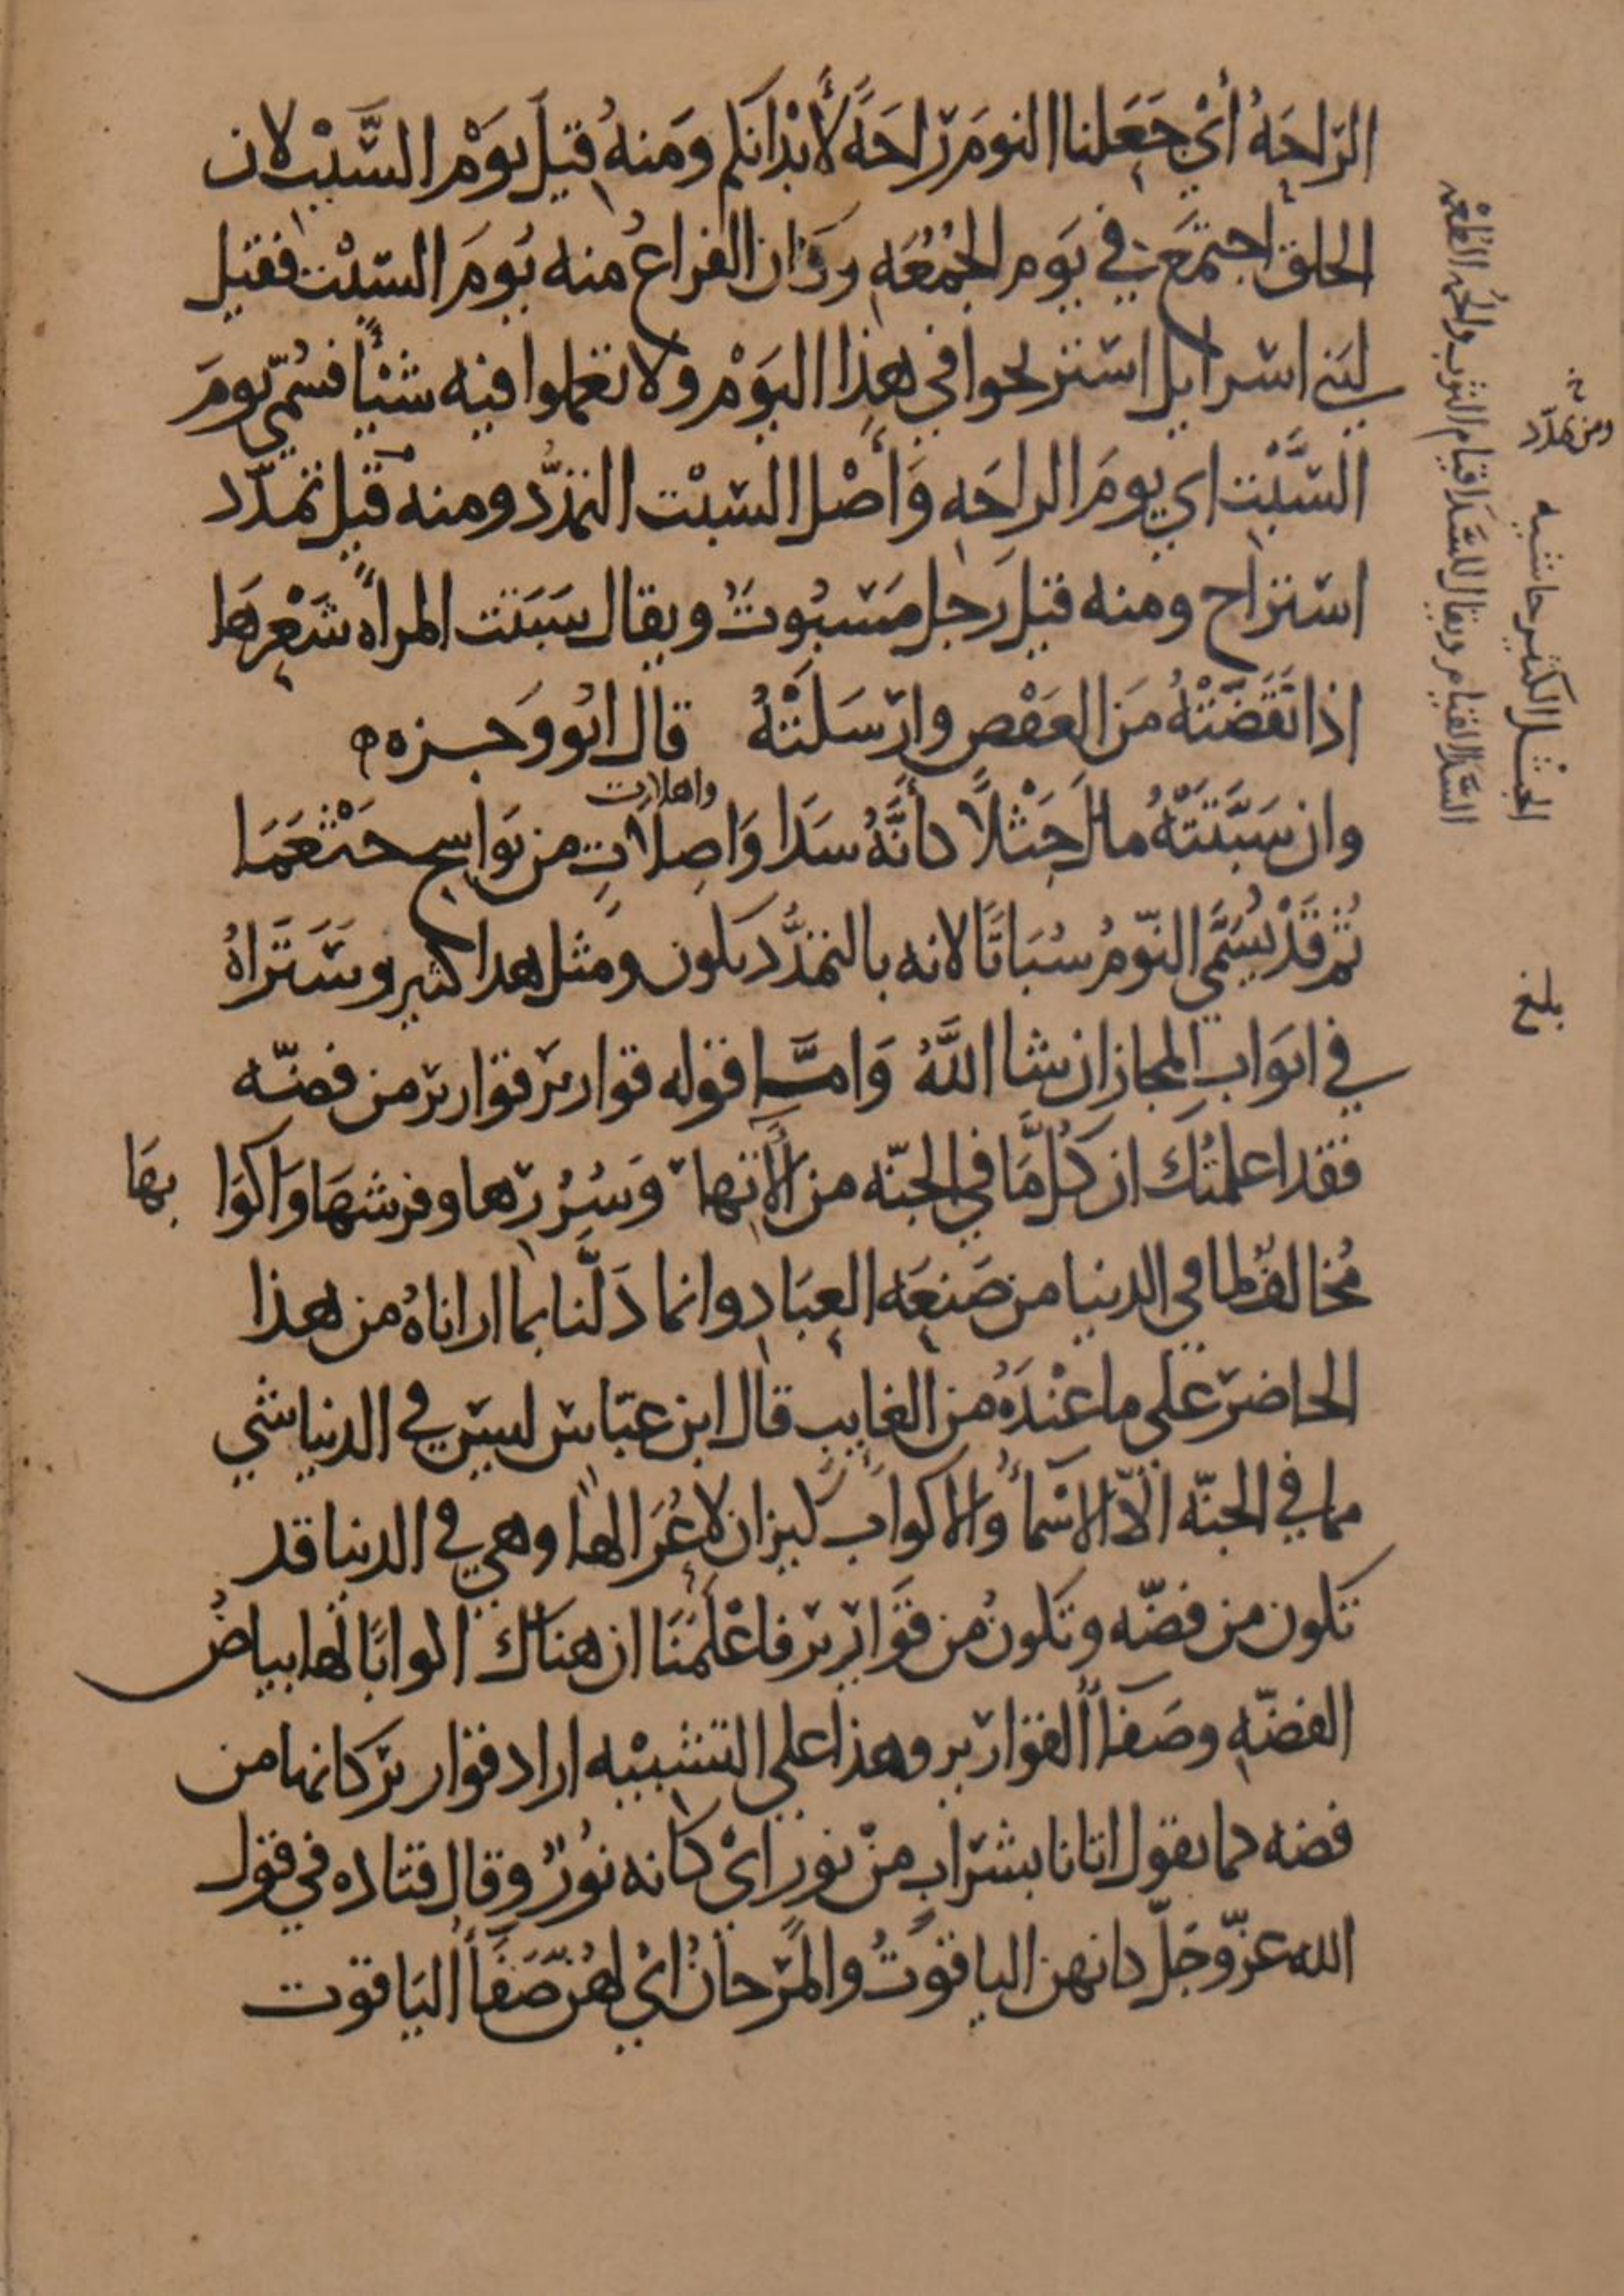 الرّاحَهُ أيْ جَعَلنا النومَ رَاحَةً لأبْدَانكم وَمنهُ قِيلَ يَوْم السَّبْت لان
الخلق اجتمَعَ في يَوم الجُمُعَهِ وكان الفراغُ منه يَومَ السّبْت فقيل
لبني اسرايل استريحوا في هذا اليَوْم ولا تعملوا فيه شيْئًا فسُمّي يومَ
السَّبْت اي يومَ الراحَه وَأصْل السّبْت التمدُّد ومنه قيل تمدّد
استراح ومنه قيلَ رَجل مَسْبُوتٌ ويقال سَبَتت المراه شَعْرهَا
اذا نَقَضَتْهُ مَن العَقْصِ وارْسَلَتْهُ قال ابُو وَجزه
وان سَبَّتَتْهُ مالَ جَثْلاً كأنَّهُ سَدَا وَاصِلاَتٍ من نَوَاسِج خَثْعَمَا
واهلات
ثُمَّ قَدْ يُسَمَّي النّومُ سُبَاتًا لانه بالتمدُّد يكون ومثل هدا كثير وسَتَرَاهُ
في ابوَابِ المجاز ان شا اللَّهُ وَامّا قوله قوارير قوارير من فضّه
فقد اعلمتُك ان كُلَّ مَّا في الجنّه من الاتها وَسُرُرها وفرشهَا وَاكوَا بهَا
مُخالفٌ لما في الدنيا من صَنعَه العِبَادِ وانما دَلَّنا بما اراناهُ من هذا
الحاضر علي ما عنْدَهُ من الغايب قال ابن عبّاس ليس في الدنيا شي
مما في الجنّه الاّ الاسْمأُ وَالاكوابُ كيزان لا عُرَا لها وهي في الدنيا قد
تكون من فضّه وتكونُ من قوَارير فاعْلَمَنَا ان هناك اكوابًا لها بياضُ
الفضّهِ وصَفَأُ القوارير وهذا علي التشبيْه اراد قوارير كانها من
فضه كما يقول اتانا بشَرَابٍ منْ نورٍ ايْ كانه نُورٌ وقال قتاده في قول
الله عزّ وجَلّ كانهن الياقوتُ والمَرْجانُ ايْ لهُنّ صَفَأُ اليَاقوت
ومن تمدّد
الجثْل الكثير حاشيه
السَّدا لقيام ويقال للسَّدا قيام الثوب والُحمه الطُعْمه
بلغ